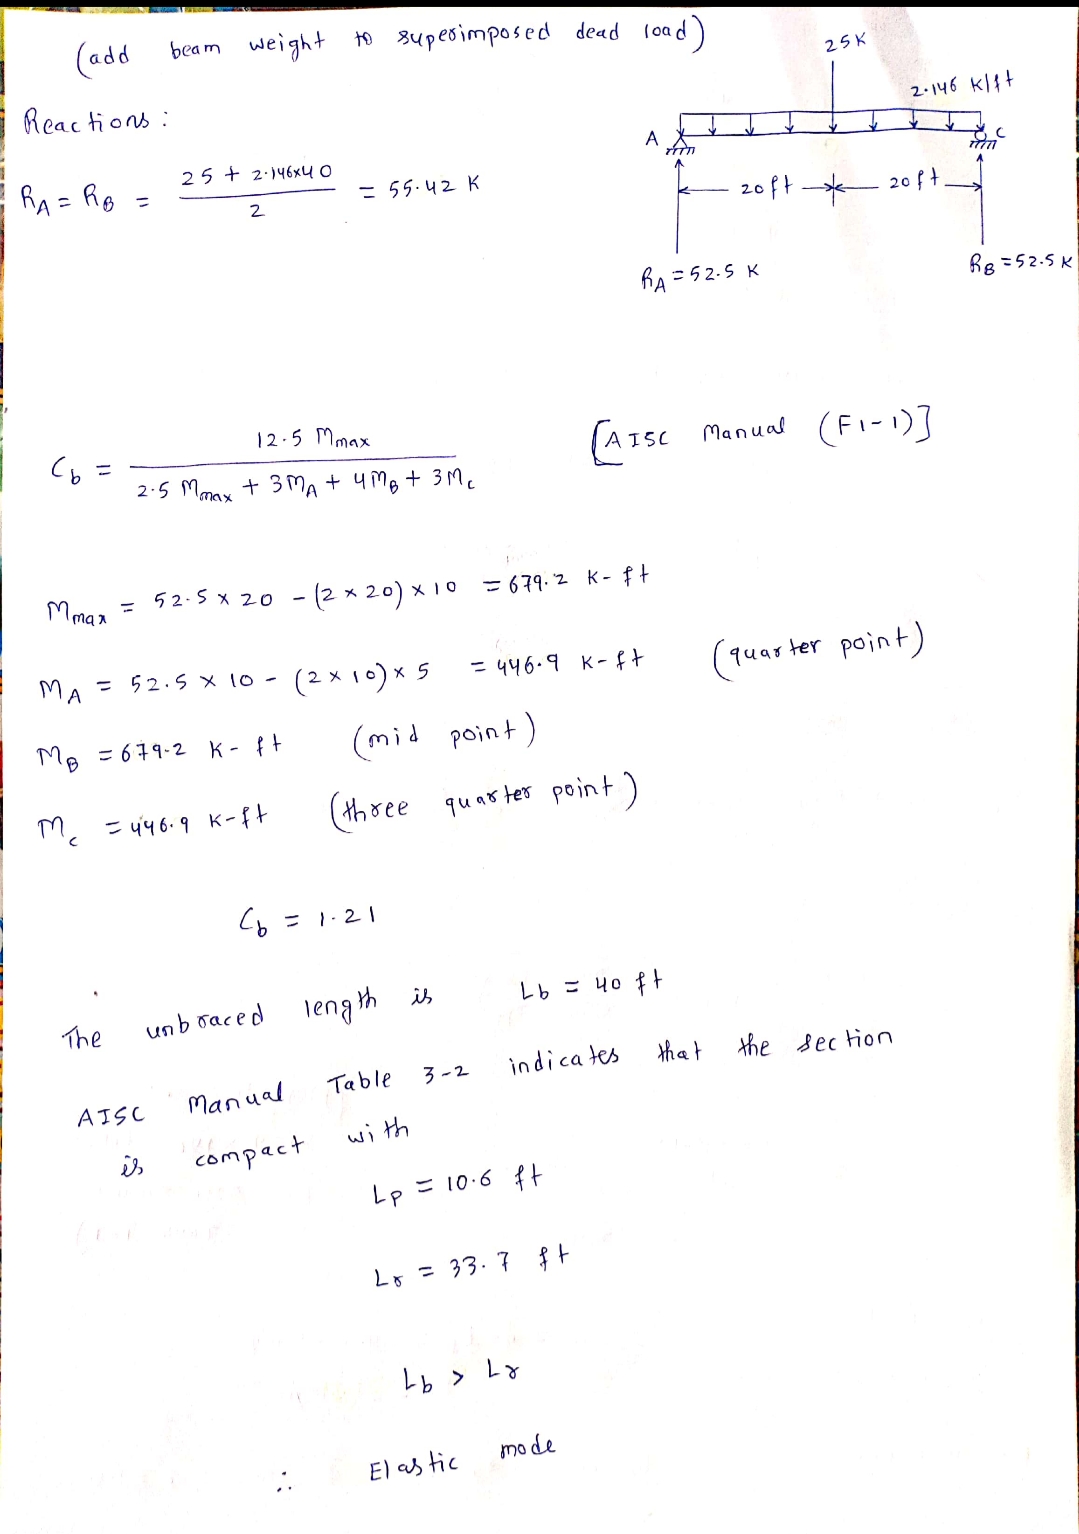 (add beam weight to superimposed dead load)
25K
2.146 K/ft
A
C
20ft
20ft
RA = 52.5 K
RB = 52.5 K
Reactions :
RA = RB = (25 + 2.146x40) / 2 = 55.42 K
Cb = 12.5 Mmax / (2.5 Mmax + 3MA + 4MB + 3Mc) [AISC Manual (F1-1)]
Mmax = 52.5 x 20 - (2 x 20) x 10 = 679.2 K-ft
MA = 52.5 x 10 - (2 x 10) x 5 = 446.9 K-ft (quarter point)
MB = 679.2 K-ft (mid point)
Mc = 446.9 K-ft (three quarter point)
Cb = 1.21
The unbraced length is Lb = 40 ft
AISC Manual Table 3-2 indicates that the section
is compact with
Lp = 10.6 ft
Lr = 33.7 ft
Lb > Lr
∴ Elastic mode